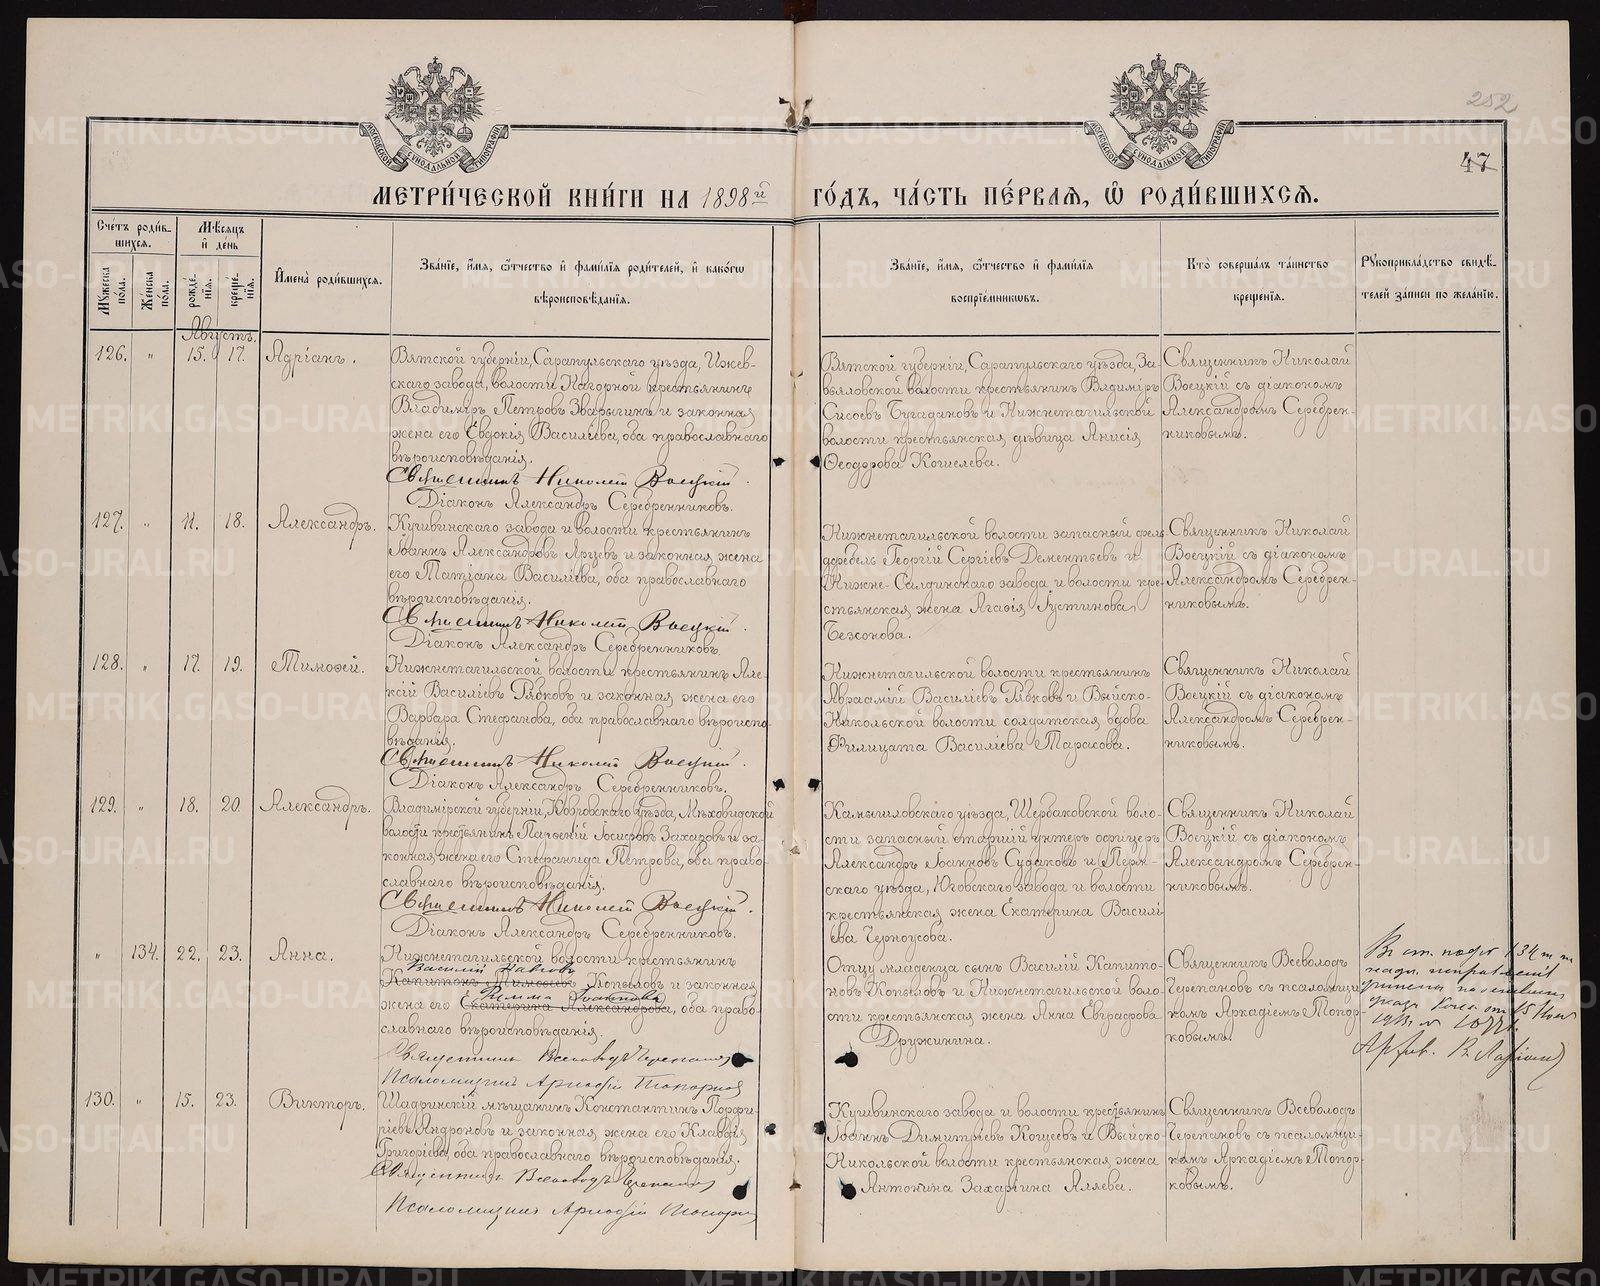 252
47
МОСКОВСКОЙ СѴНОДАЛЬНОЙ ТИПОГРАФІИ
МОСКОВСКОЙ СѴНОДАЛЬНОЙ ТИПОГРАФІИ
МЕТРИ́ЧЕСКОЙ КНИ́ГИ НА 1898й ГО́ДЪ, ЧА́СТЬ ПЕ́РВАѦ, Ѡ҆ РОДИ́ВШИХСѦ.
Сче́тъ роди́в-
шихсѧ.
Мѣ́сѧцъ
и҆ де́нь
Мꙋ́жеска
по́ла.
Же́нска
по́ла.
рожде́-
нїѧ.
креще́-
нїѧ.
И҆мена̀ роди́вшихсѧ.
Зва́нїе, и҆́мѧ, ѻ҆́тчество и҆ фами́лїѧ роди́телей, и҆ како́гѡ
вѣроисповѣ́данїѧ.
Зва́нїе, и҆́мѧ, ѻ҆́тчество и҆ фами́лїѧ
воспрїе́мникѡвъ.
Кто̀ соверша́лъ та́инство
креще́нїѧ.
Рꙋкоприкла́дство свидѣ́-
телей за́писи по жела́нїю.
Августъ.
126. " 15. 17. Адріанъ.
Вятской губерніи, Сарапульскаго уѣзда, Ижев-
скаго завода, волости Нагорной крестьянинъ
Владиміръ Петровъ Зварыгинъ и законная
жена его Евдокія Василіева, оба православнаго
вѣроисповѣданія.
Священникъ Николай Воецкій.
Діаконъ Александръ Серебренниковъ.
Вятской губерніи, Сарапульскаго уѣзда, За-
вьяловской волости крестьянинъ Владиміръ
Сисоевъ Бугадановъ и Нижнетагильской
волости крестьянская дѣвица Анисія
Ѳеодорова Кошелева.
Священникъ Николай
Воецкій съ діакономъ
Александромъ Серебрен-
никовымъ.
127. " 11. 18. Александръ.
Кушвинскаго завода и волости крестьянинъ
Іоаннъ Александровъ Ярцевъ и законная жена
его Татіана Василіева, оба православнаго
вѣроисповѣданія.
Священникъ Николай Воецкій.
Діаконъ Александръ Серебренниковъ.
Нижнетагильской волости запасный фельд-
фебель Георгій Сергіевъ Дементьевъ и
Нижне-Салдинскаго завода и волости кре-
стьянская жена Агафія Іустинова
Безсонова.
Священникъ Николай
Воецкій съ діакономъ
Александромъ Серебрен-
никовымъ.
128. " 17. 19. Тимоѳей.
Нижнетагильской волости крестьянинъ Але-
ксій Василіевъ Рябковъ и законная жена его
Варвара Стефанова, оба православнаго вѣроиспо-
вѣданія.
Священникъ Николай Воецкій.
Діаконъ Александръ Серебренниковъ.
Нижнетагильской волости крестьянинъ
Авраамій Василіевъ Рябковъ и Выйско-
Никольской волости солдатская вдова
Филицата Василіева Тарасова.
Священникъ Николай
Воецкій съ діакономъ
Александромъ Серебрен-
никовымъ.
129. " 18. 20. Александръ.
Владимірской губерніи, Ковровскаго уѣзда, Мѣховицской
волости крестьянинъ Парѳеній Іосифовъ Захаровъ и за-
конная жена его Стефанида Петрова, оба право-
славнаго вѣроисповѣданія.
Священникъ Николай Воецкій.
Діаконъ Александръ Серебренниковъ.
Камышловскаго уѣзда, Щербаковской воло-
сти запасный старшій унтеръ офицеръ
Александръ Іоанновъ Судаковъ и Перм-
скаго уѣзда, Юговскаго завода и волости
крестьянская жена Екатерина Василі-
ева Черноусова.
Священникъ Николай
Воецкій съ діакономъ
Александромъ Серебрен-
никовымъ.
" 134. 22. 23. Анна.
Нижнетагильской волости крестьянинъ
Василій Павловъ
Капитонъ Тимоѳеевъ Копыловъ и законная
Римма Іоаннова
жена его Екатерина Александрова, оба право-
славнаго вѣроисповѣданія.
Священникъ Всеволодъ Черепановъ
Псаломщикъ Аркадій Топорковъ
Отцу младенца сынъ Василій Капито-
новъ Копыловъ и Нижнетагильской воло-
сти крестьянская жена Анна Евграфова
Дружинина.
Священникъ Всеволодъ
Черепановъ съ псаломщи-
комъ Аркадіемъ Топор-
ковымъ.
В ст. подъ № 134
15
130. " 15. 23. Викторъ.
Шадринскій мѣщанинъ Константинъ Порфи-
ріевъ Андроновъ и законная жена его Клавдія
Григоріева, оба православнаго вѣроисповѣданія.
Священникъ Всеволодъ Черепановъ
Псаломщикъ Аркадій Топорковъ
Кушвинскаго завода и волости крестьянинъ
Іоаннъ Димитріевъ Кощеевъ и Выйско-
Никольской волости крестьянская жена
Антонина Захаріина Аляева.
Священникъ Всеволодъ
Черепановъ съ псаломщи-
комъ Аркадіемъ Топор-
ковымъ.
METRIKI.GASO-URAL.RU